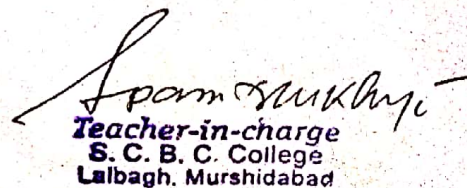 Teacher-in-charge
S. C. B. C. College
Lalbagh, Murshidabad